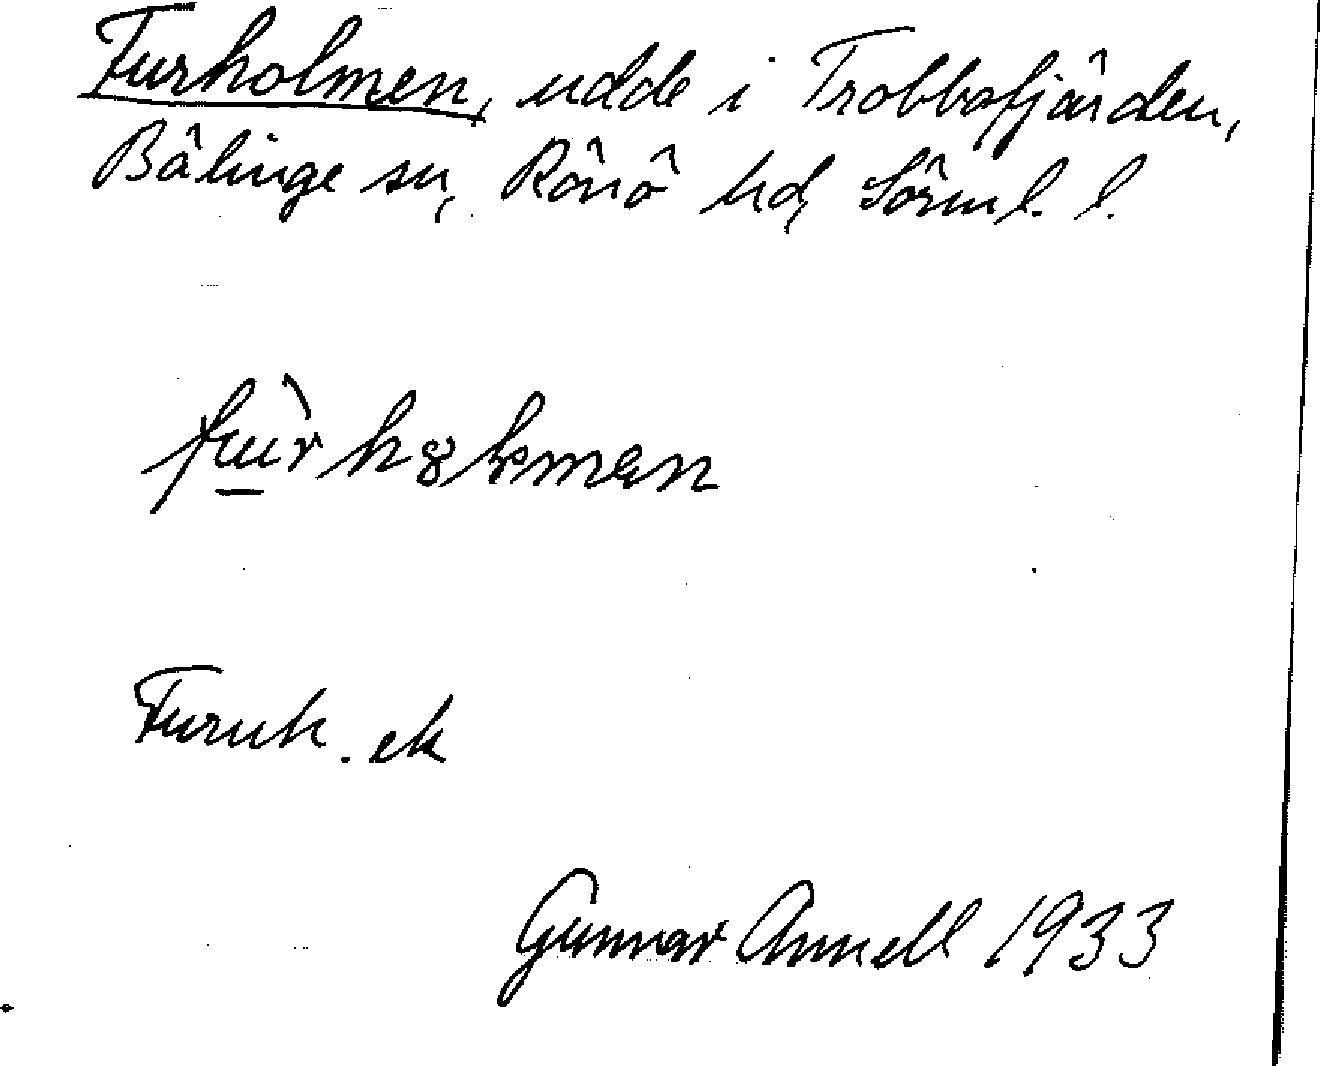 Furholmen, udde i Trobbofjärden,
Bälinge sn, Rönö hd, Sörml. l.
Furuh. ek
Gunnar Annell 1933